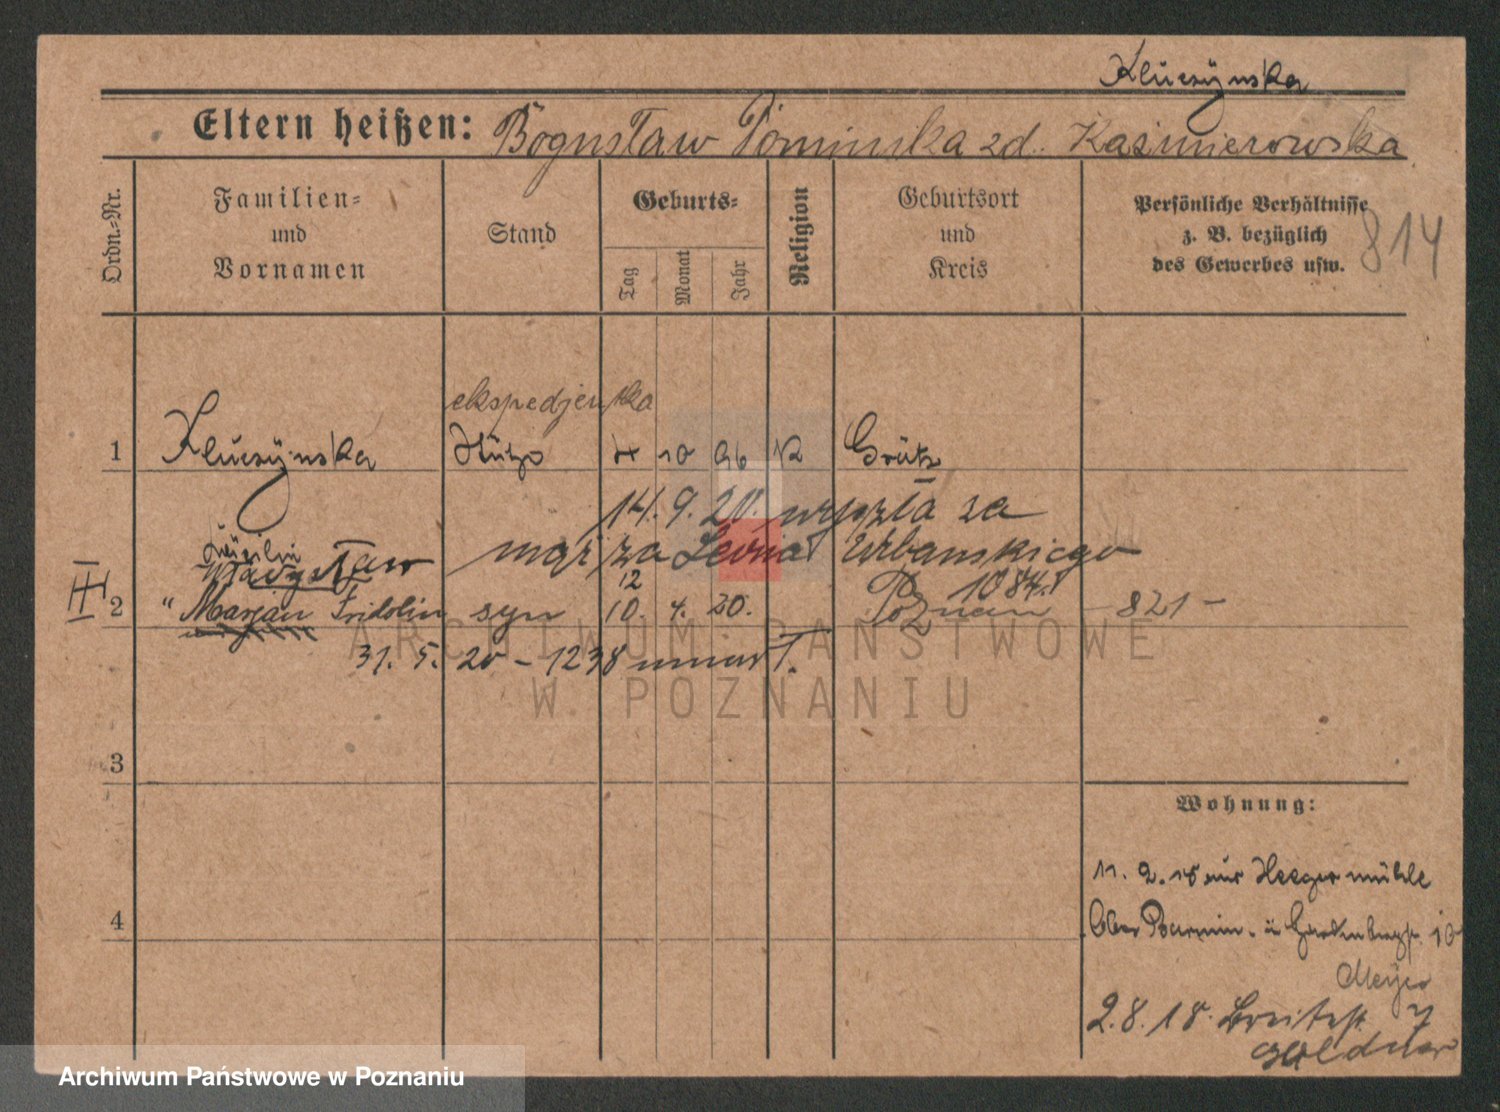 Kluczynska
Eltern heißen: Bogusław Pominska zd. Kaźmierowska
Ordn.-Nr.
Familien-
und
Vornamen
Stand
Geburts-
Tag
Monat
Jahr
Religion
Geburtsort
und
Kreis
Persönliche Verhältnisse
z. B. bezüglich
des Gewerbes usw.
814
ekspedjentka
1 Kluczynska 10 96 K Grätz
14. 9. 20. wyszła za
mąż za Leona Urbanskiego
Władysław
12 1084.
III 2 " Marjan Fridolin syn 10. 4. 20. Poznań – 821 –
31. 5. 20 – 1238 umarł.
3
Wohnung:
11. 2. 18 aus Heegermühle
4
Ober Barnim. 10
Meyer
2. 8. 18. Breitestr. 7
ARCHIWUM PAŃSTWOWE
W POZNANIU
Archiwum Państwowe w Poznaniu